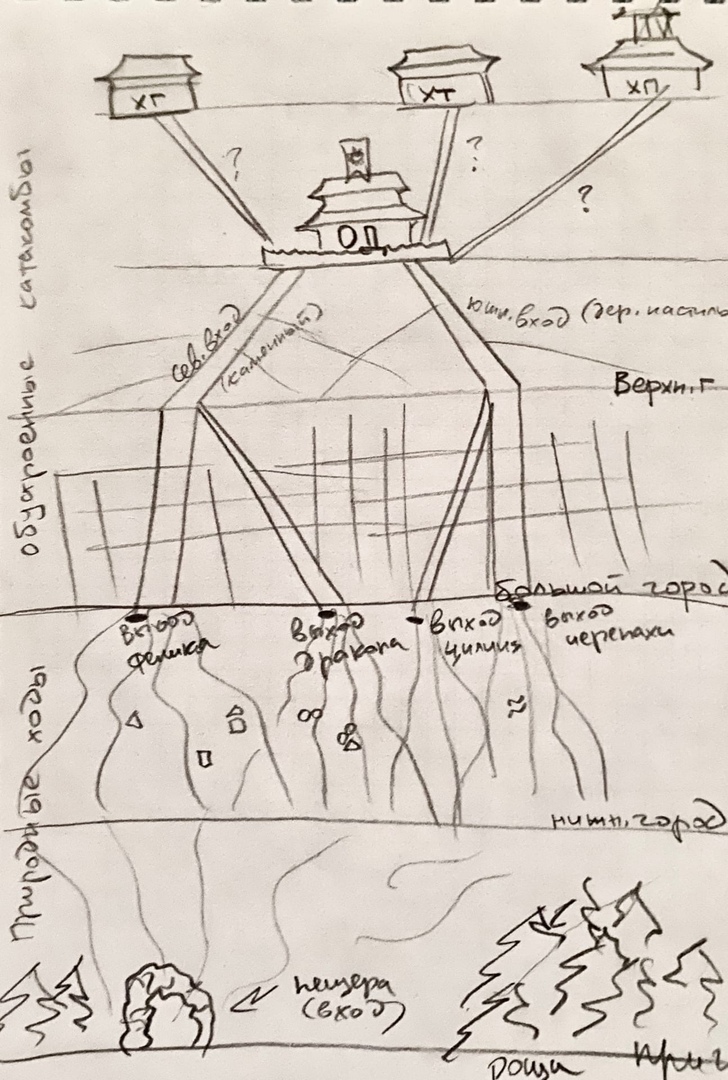 ХГ
ХТ
ХП
?
?
?
ОД
сев. вход
(каменный)
южн. вход (дер. настил
Верхн. г
обустроенные катакомбы
большой город
выход
феникса
выход
дракона
выход
цилиня
выход
черепахи
Природные ходы
нижн. город
пещера
(вход)
роща
приг